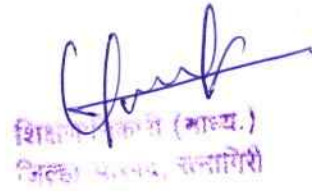 शिक्षणाधिकारी (माध्य.)
जिल्हा परिषद, रत्नागिरी